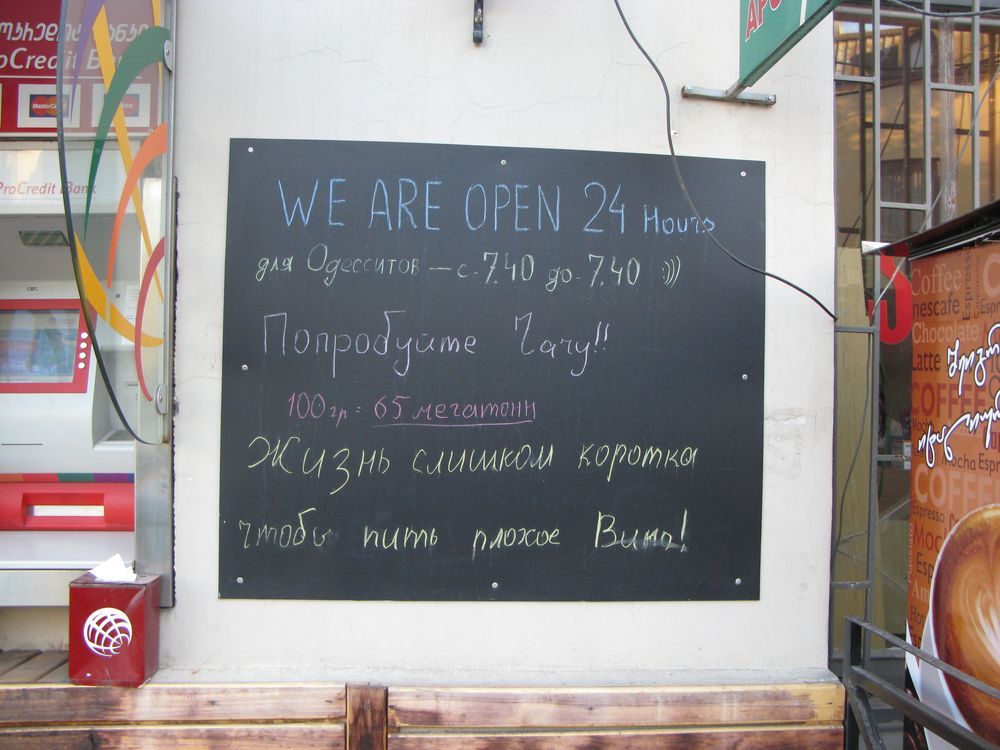 ProCredit Bank
MasterCard
ProCredit Bank
WE ARE OPEN 24 Hours
для Одесситов — с. 7.40 до. 7.40 :)))
Попробуйте Чачу!!
100 гр = 65 мегатонн
Жизнь слишком коротка
чтобы пить плохое Вино!
Coffee
nescafe
Espresso
Chocolate
Latte
COFFEE
Mocha Espr
COFFEE
Espresso
Mocha